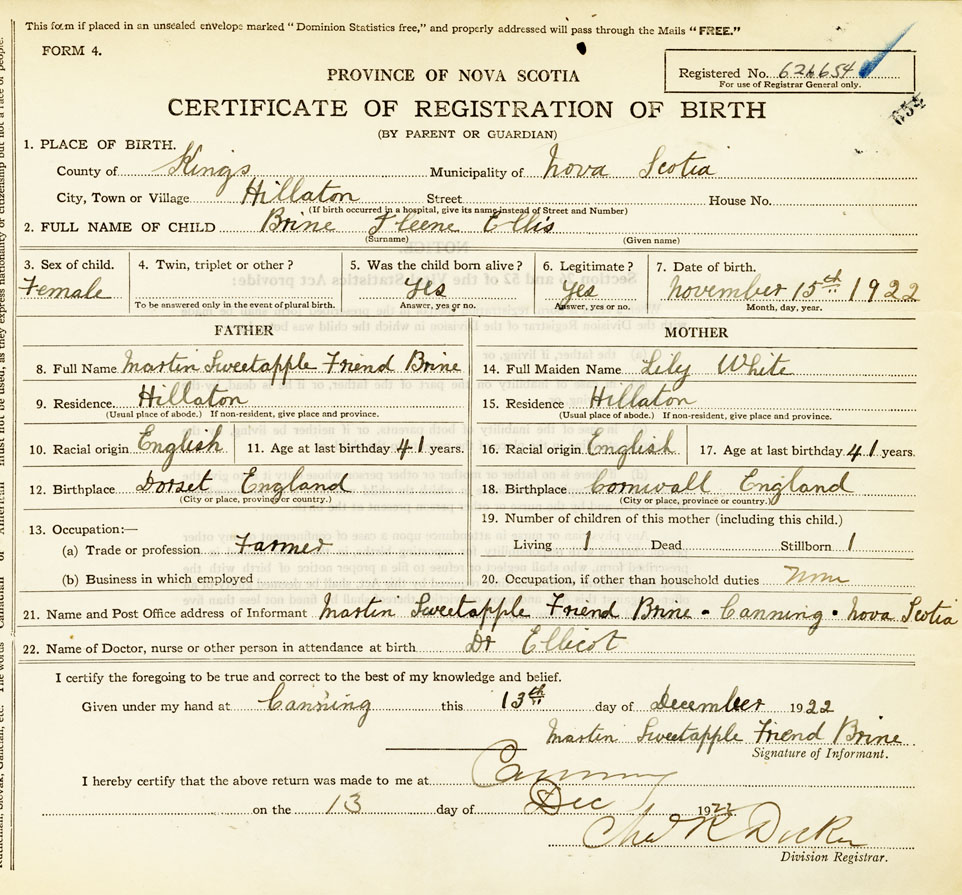 This form if placed in an unsealed envelope marked "Dominion Statistics free," and properly addressed will pass through the Mails "FREE."
FORM 4.
PROVINCE OF NOVA SCOTIA
Registered No. 626654
For use of Registrar General only.
654
CERTIFICATE OF REGISTRATION OF BIRTH
(BY PARENT OR GUARDIAN)
1. PLACE OF BIRTH.
County of Kings Municipality of Nova Scotia
City, Town or Village Hillaton Street House No.
(If birth occurred in a hospital, give its name instead of Street and Number)
2. FULL NAME OF CHILD Brine Ileene Ellis
(Surname) (Given name)
3. Sex of child. 4. Twin, triplet or other? 5. Was the child born alive? 6. Legitimate? 7. Date of birth.
Female Yes Yes November 15th 1922
To be answered only in the event of plural birth. Answer, yes or no. Answer, yes or no. Month, day, year.
FATHER MOTHER
8. Full Name Martin Sweetapple Friend Brine 14. Full Maiden Name Lily White
9. Residence. Hillaton 15. Residence Hillaton
(Usual place of abode.) If non-resident, give place and province. (Usual place of abode.) If non-resident, give place and province.
10. Racial origin English 11. Age at last birthday 41 years. 16. Racial origin English 17. Age at last birthday 41 years.
12. Birthplace Dorset England 18. Birthplace Cornwall England
(City or place, province or country.) (City or place, province or country.)
13. Occupation:— 19. Number of children of this mother (including this child.)
(a) Trade or profession Farmer Living 1 Dead Stillborn 1
(b) Business in which employed 20. Occupation, if other than household duties None
21. Name and Post Office address of Informant Martin Sweetapple Friend Brine - Canning - Nova Scotia
22. Name of Doctor, nurse or other person in attendance at birth Dr Ellicot
I certify the foregoing to be true and correct to the best of my knowledge and belief.
Given under my hand at Canning this 13th day of December 1922
Martin Sweetapple Friend Brine
Signature of Informant.
I hereby certify that the above return was made to me at Canning
on the 13 day of Dec 1922
Division Registrar.